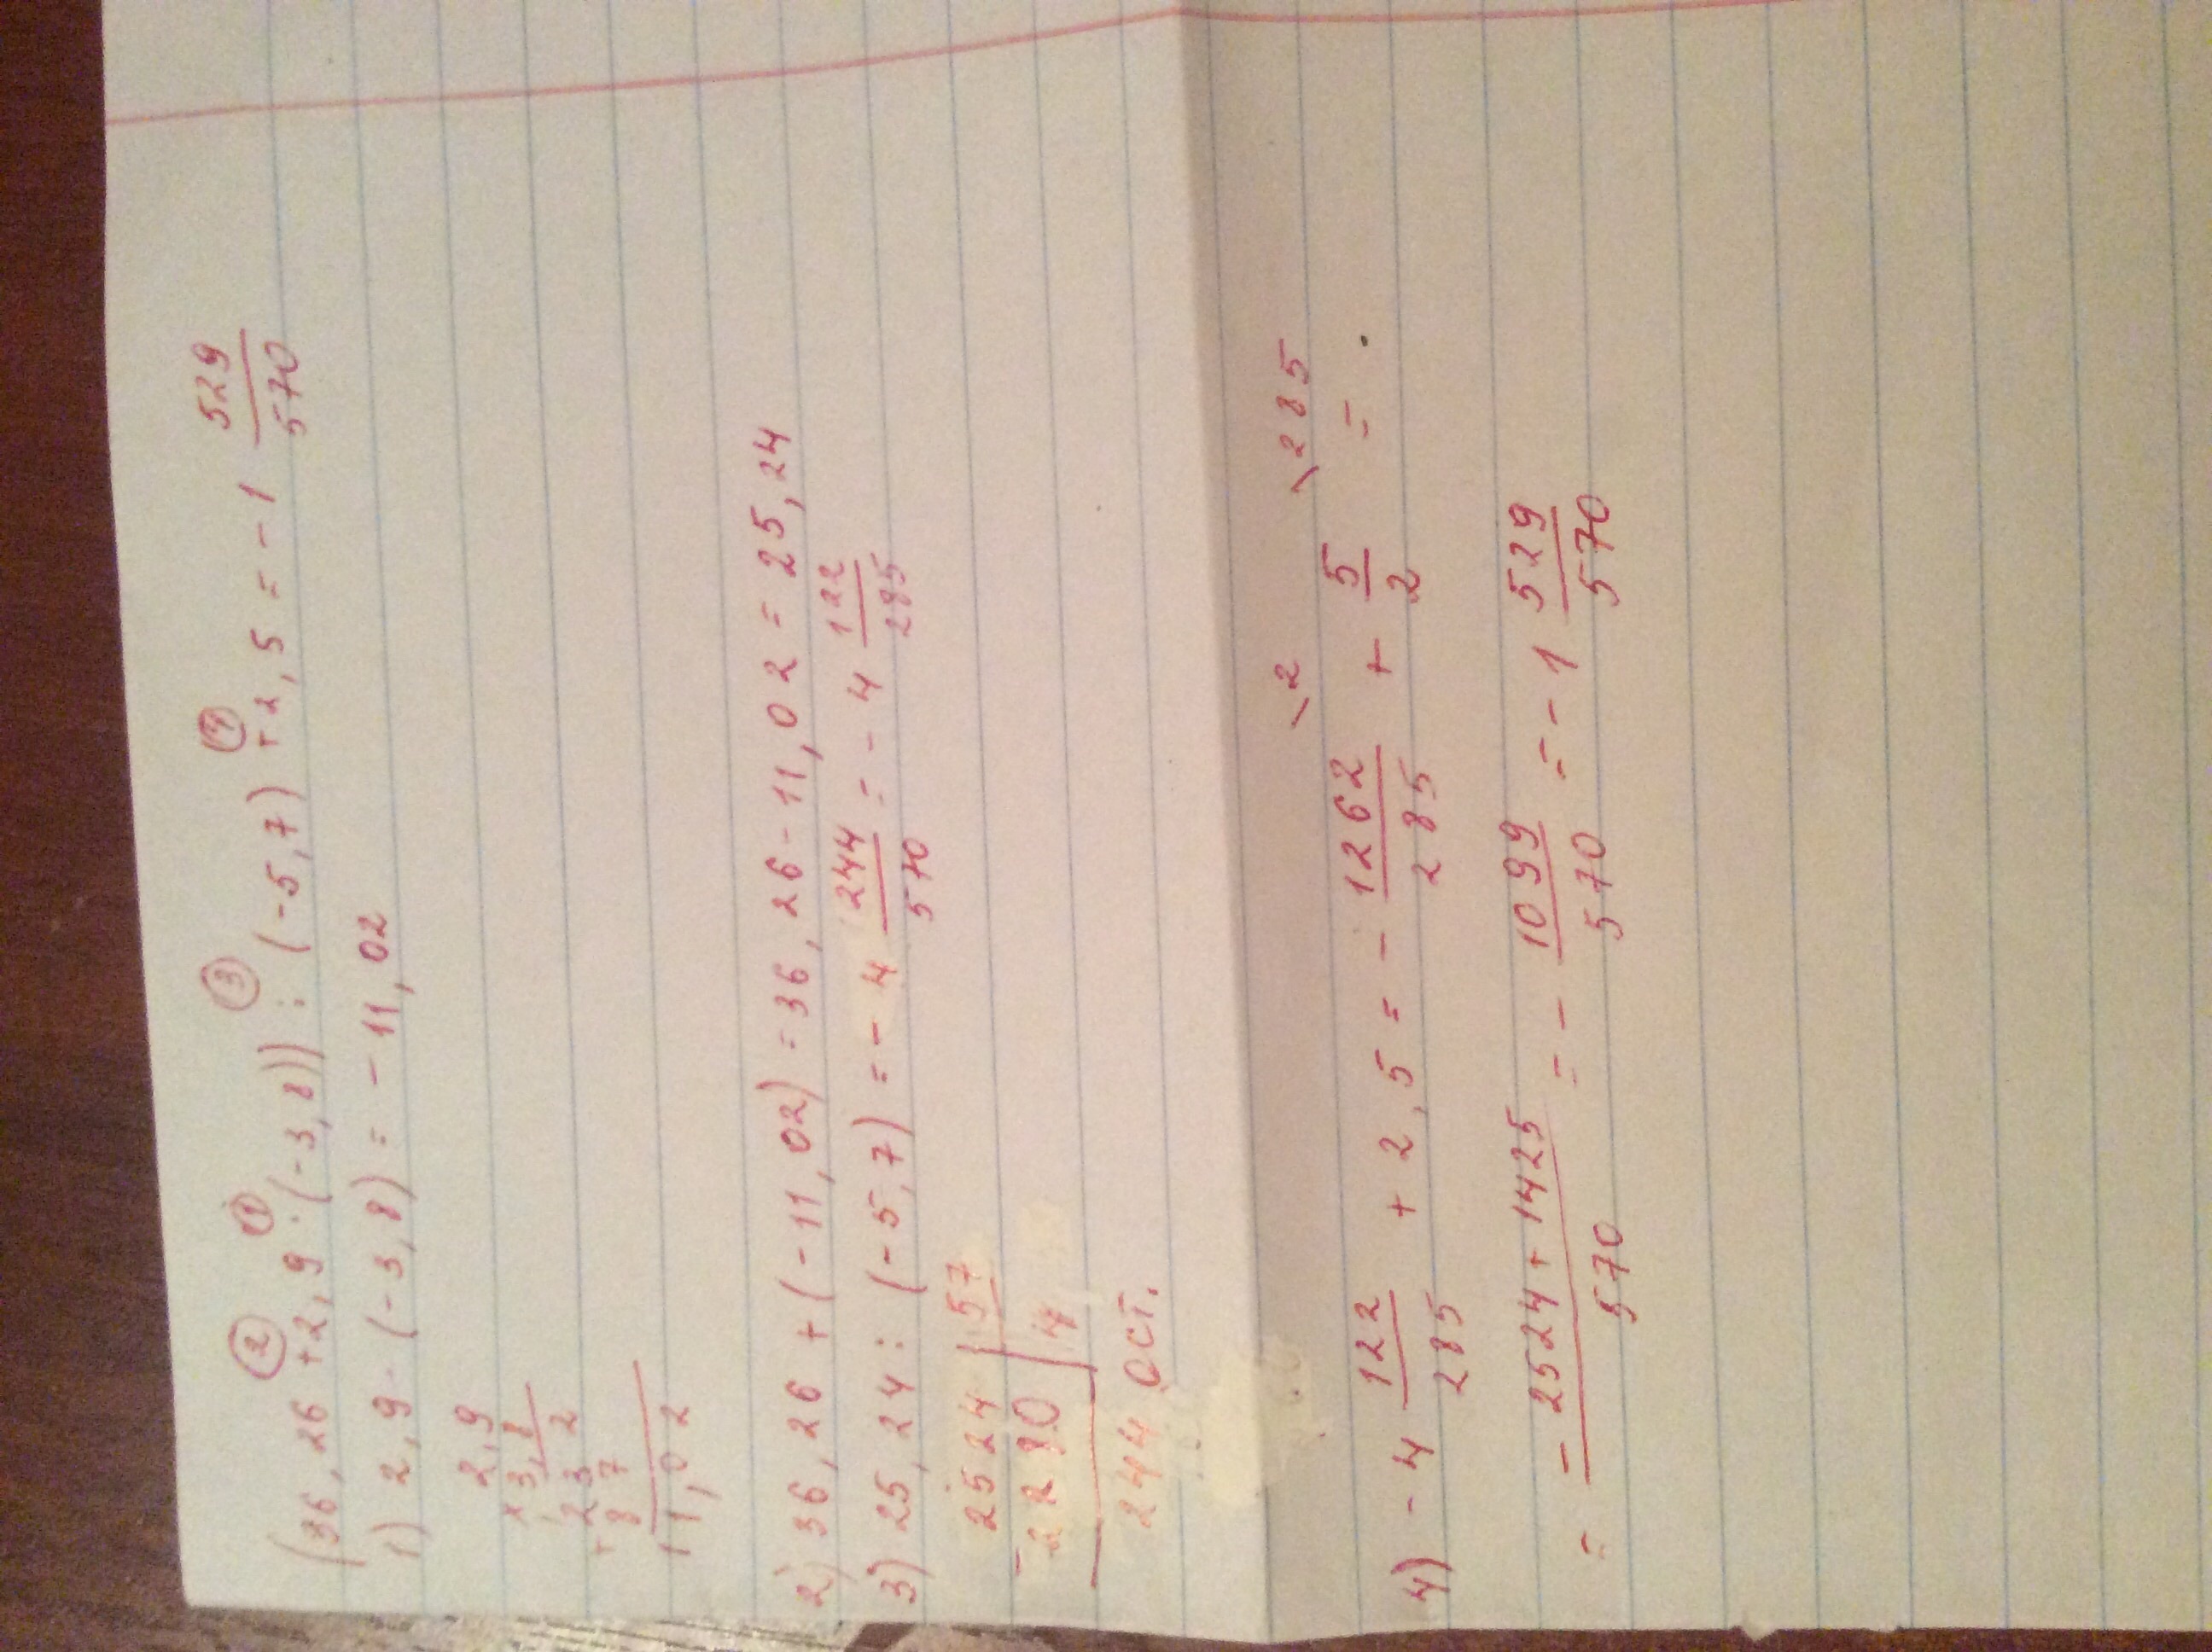 ② ① ③ ④
(36,26 + 2,9 · (-3,8)) : (-5,7) + 2,5 = -1 529/570
1) 2,9 · (-3,8) = -11,02
2,9
× 3,8
232
+ 87
11,02
2) 36,26 + (-11,02) = 36,26 - 11,02 = 25,24
3) 25,24 : (-5,7) = -4 244/570 = -4 122/285
2524 | 57
- 2280 | 4
244 ост.
\2 \285
4) -4 122/285 + 2,5 = - 1262/285 + 5/2 = .
= -2524+1425/570 = - 1099/570 = -1 529/570